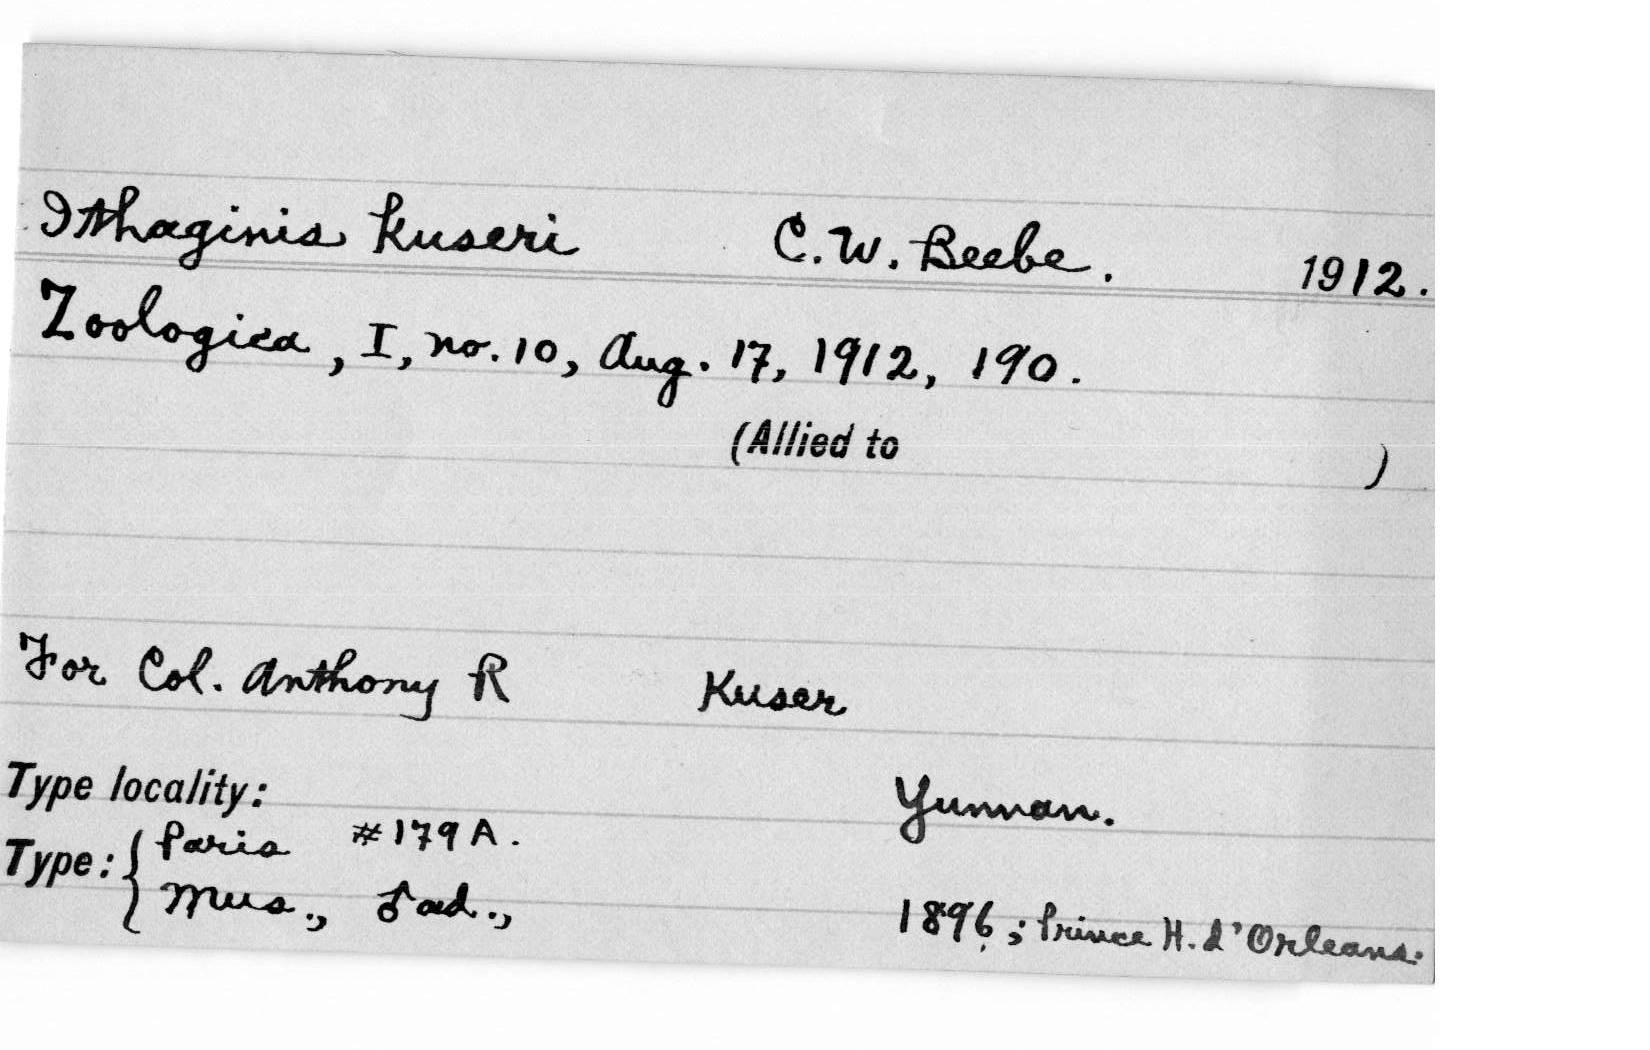 Ithaginis kuseri C. W. Beebe. 1912.
Zoologica, I, no. 10, Aug. 17, 1912, 190.
(Allied to )
For Col. Anthony R Kuser
Type locality: Yunnan.
Type: { Paris #179A.
Mus., ♂ad., 1896; Prince H. d'Orleans.